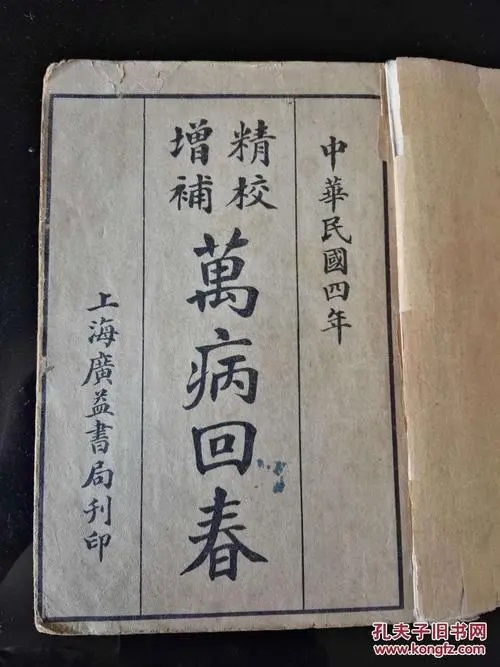 中華民國四年
精校
增補
萬病回春
上海廣益書局刊印
孔夫子旧书网
www.kongfz.com